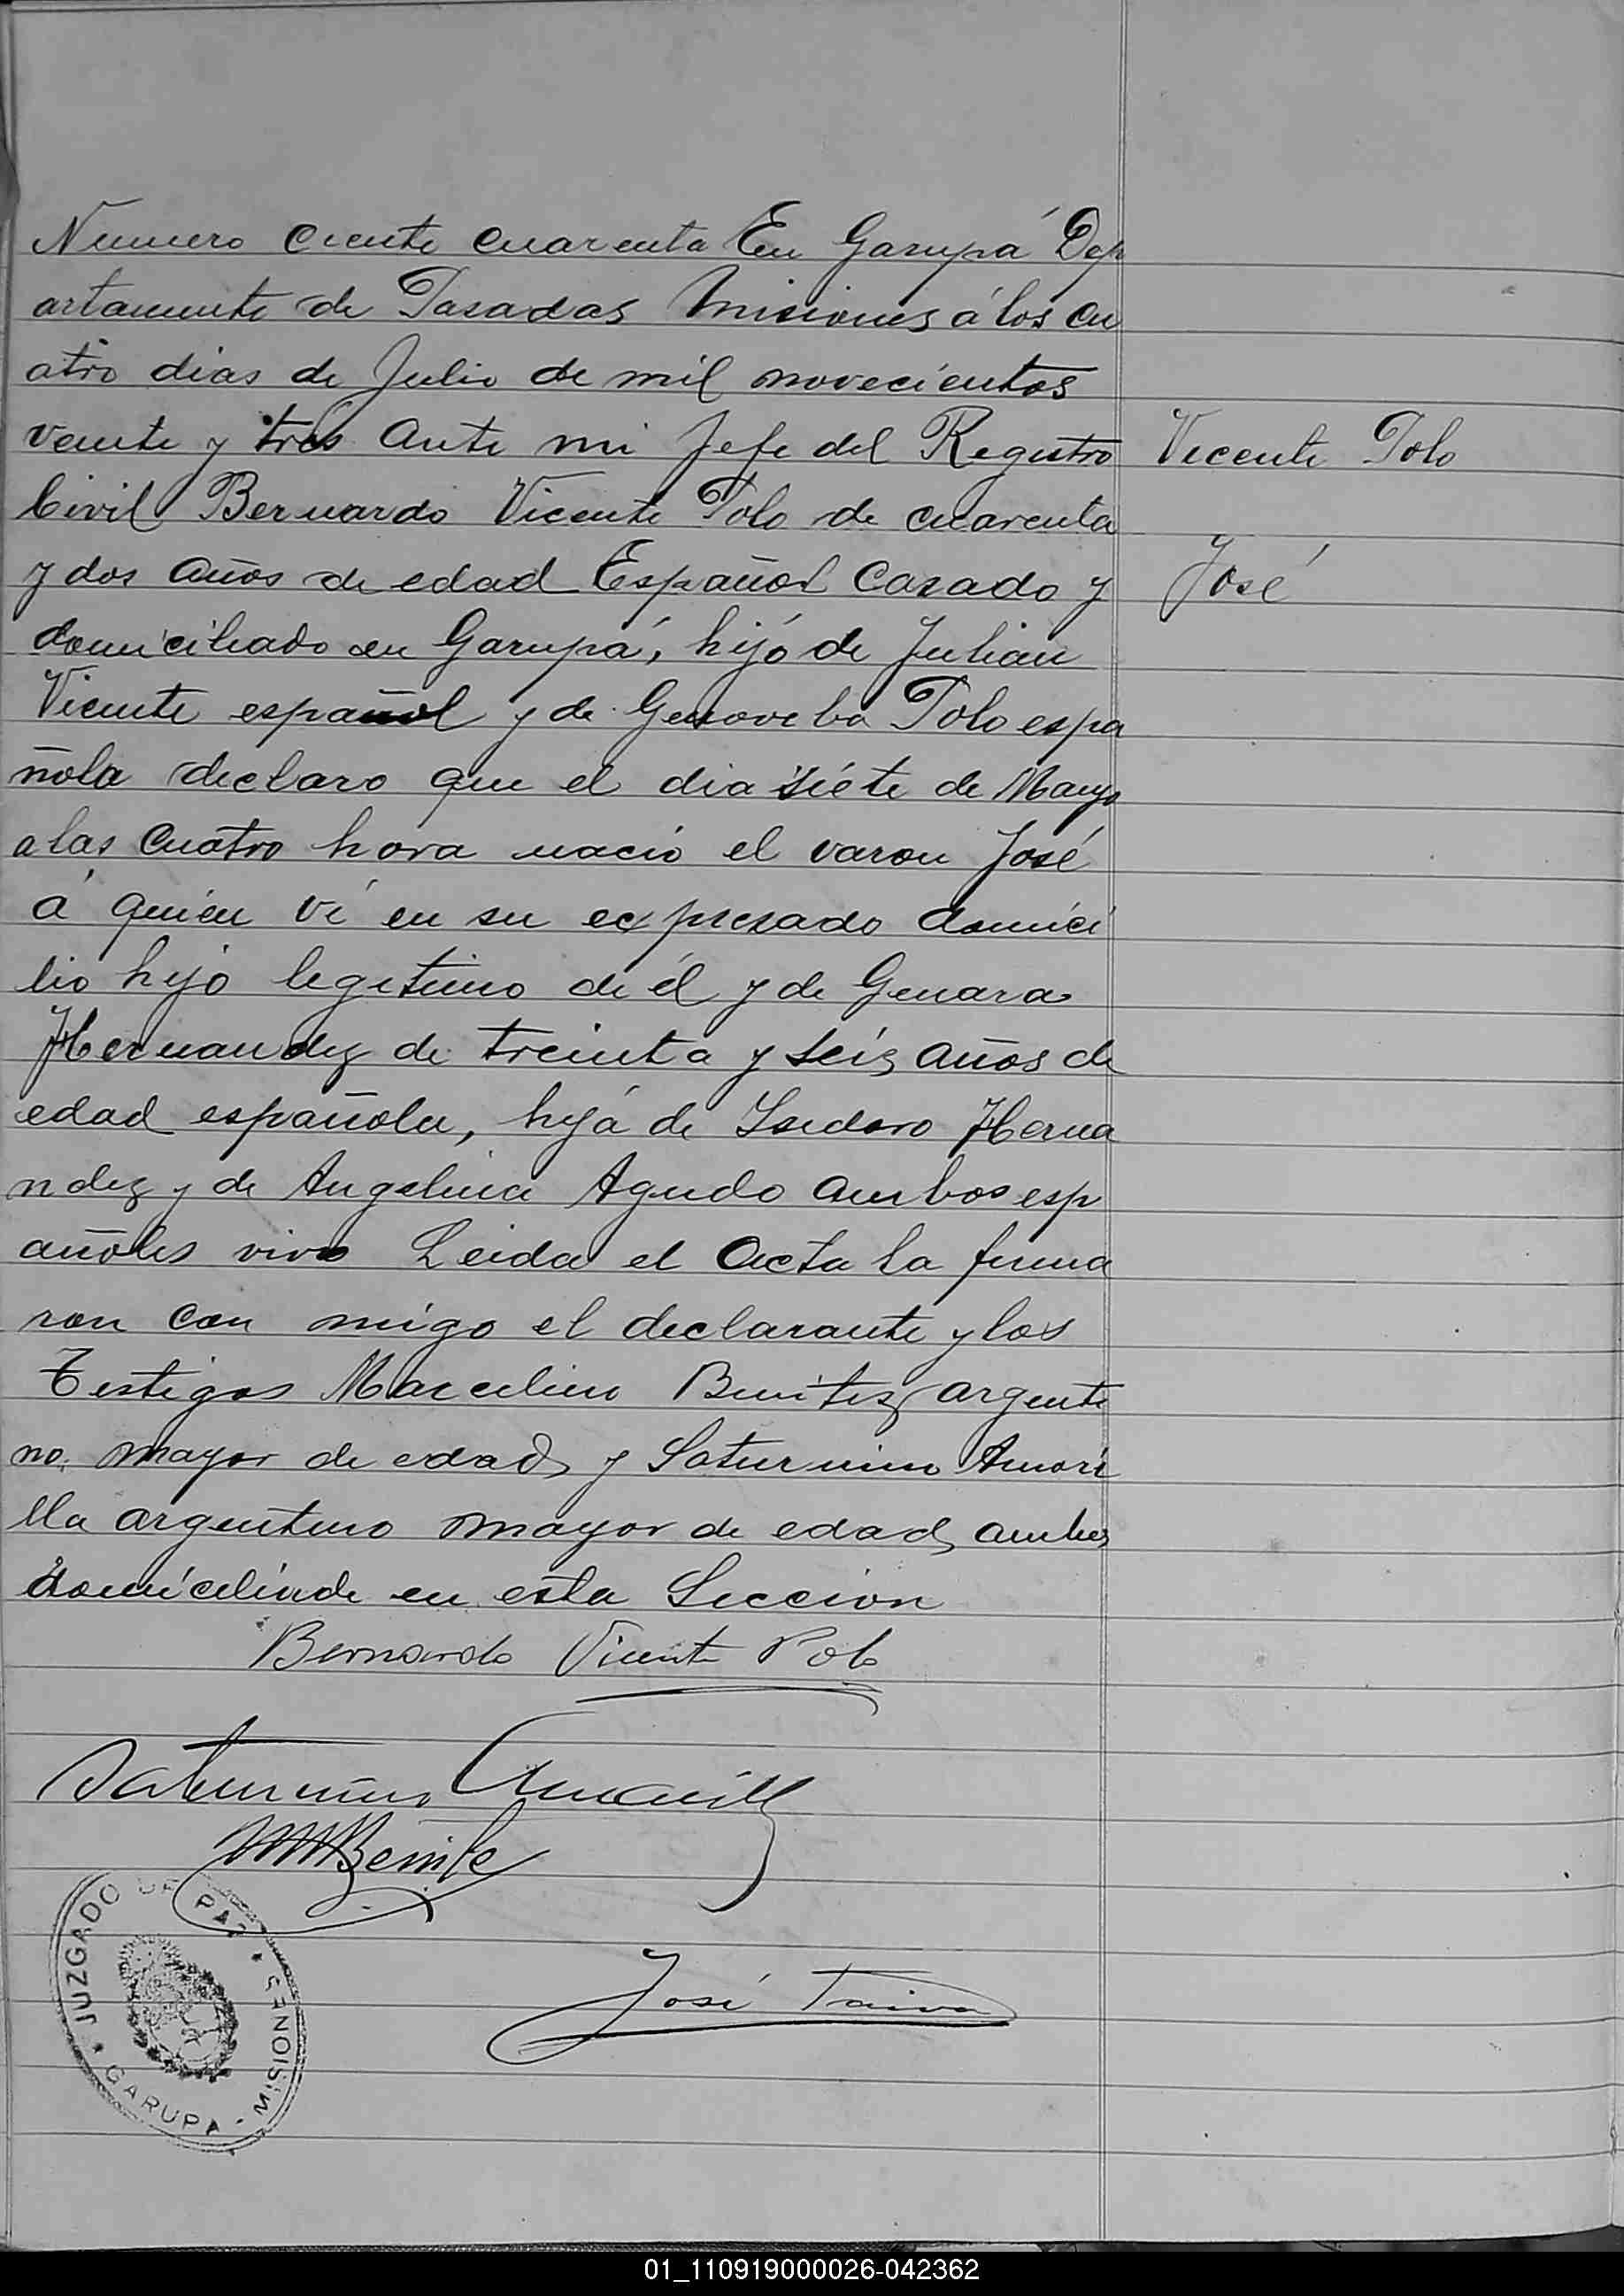 Numero ciento cuarenta En Garupá Dep
artamento de Posadas Misiones á los cu
atro dias de Julio de mil novecientos
veinte y tres Ante mi Jefe del Registro
Civil Bernardo Vicente Polo de cuarenta
y dos años de edad Español Casado y
domiciliado en Garupá, hijo de Julian
Vicente español y de Genoveba Polo espa
ñola declaro que el dia siete de Mayo
a las cuatro hora nacio el varon José
á quien vi en su expresado domici
lio hijo legitimo de él y de Genara
Hernandez de treinta y seis años de
edad española, hija de Isidoro Herna
ndez y de Angelina Agudo ambos esp
añoles vivo Leida el Acta la firma
ron con migo el declarante y los
Testigos Marcelino Benitez argenti
no mayor de edad y Saturnino Amari
lla argentino mayor de edad ambos
domiciliado en esta Seccion
Vicente Polo
José
Bernardo Vicente Polo
Saturnino Amarill
MBenite
José
JUZGADO DE PAZ
MISIONES
GARUPA
01_110919000026-042362